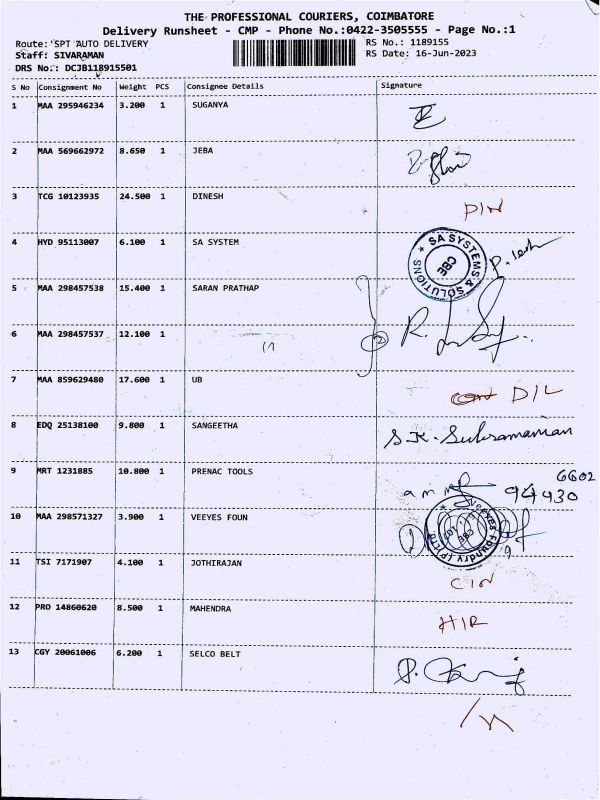 THE PROFESSIONAL COURIERS, COIMBATORE
Delivery Runsheet - CMP - Phone No.:0422-3505555 - Page No.:1
Route: SPT AUTO DELIVERY
RS No.: 1189155
Staff: SIVARAMAN
RS Date: 16-Jun-2023
DRS No.: DCJB118915501
S No Consignment No Weight PCS Consignee Details Signature
1 MAA 295946234 3.200 1 SUGANYA
2 MAA 569662972 8.650 1 JEBA
3 TCG 10123935 24.500 1 DINESH DIN
4 HYD 95113007 6.100 1 SA SYSTEM
SA SYSTEMS & SOLUTIONS
CBE
5 MAA 298457538 15.400 1 SARAN PRATHAP
6 MAA 298457537 12.100 1
2
7 MAA 859629480 17.600 1 UB D/L
8 EDQ 25138100 9.800 1 SANGEETHA S.K. Subramanian
9 MRT 1231885 10.800 1 PRENAC TOOLS 94430 6602
10 MAA 298571327 3.900 1 VEEYES FOUN
Veeyes Foundry (P) Ltd
CBE
11 TSI 7171907 4.100 1 JOTHIRAJAN CIN
12 PRO 14860620 8.500 1 MAHENDRA HIR
13 CGY 20061006 6.200 1 SELCO BELT